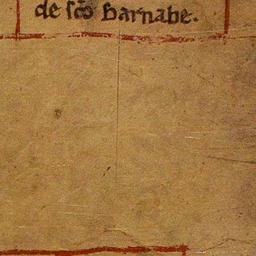 de sc̄o barnabe.